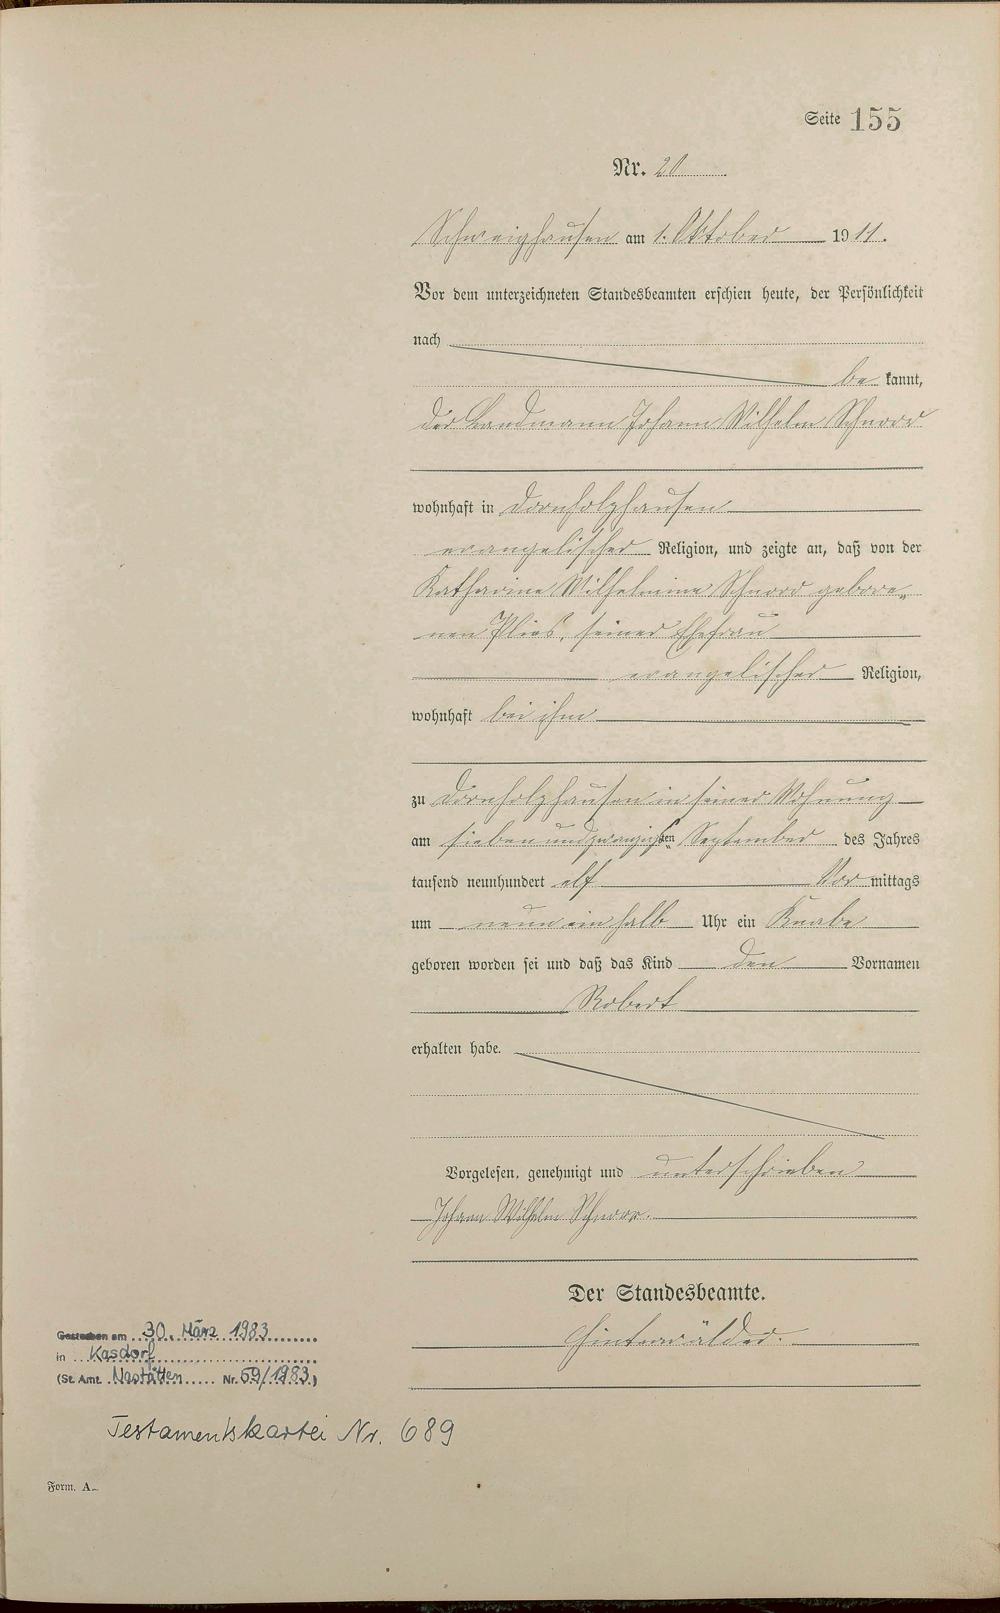 Seite 155
Nr. 20
Schweighausen am 1. Oktober 1911.
Vor dem unterzeichneten Standesbeamten erschien heute, der Persönlichkeit
nach
be kannt,
der Landmann Johann Wilhelm Schnorr
wohnhaft in Dornholzhausen
evangelischer Religion, und zeigte an, daß von der
Katharine Wilhelmine Schnorr gebore„
nen Plies, seiner Ehefrau
evangelischer Religion,
wohnhaft bei ihm
zu Dornholzhausen in seiner Wohnung
am sieben undzwanzigsten September des Jahres
tausend neunhundert elf Vor mittags
um neun ein halb Uhr ein Knabe
geboren worden sei und daß das Kind den Vornamen
Robert
erhalten habe.
Vorgelesen, genehmigt und unterschrieben
Johann Wilhelm Schnorr.
Der Standesbeamte.
Hinterwälder.
Gestorben am 30. März 1983
in Kasdorf
(St. Amt. Nastätten Nr. 59/1983)
Testamentskartei Nr. 689
Form. A.